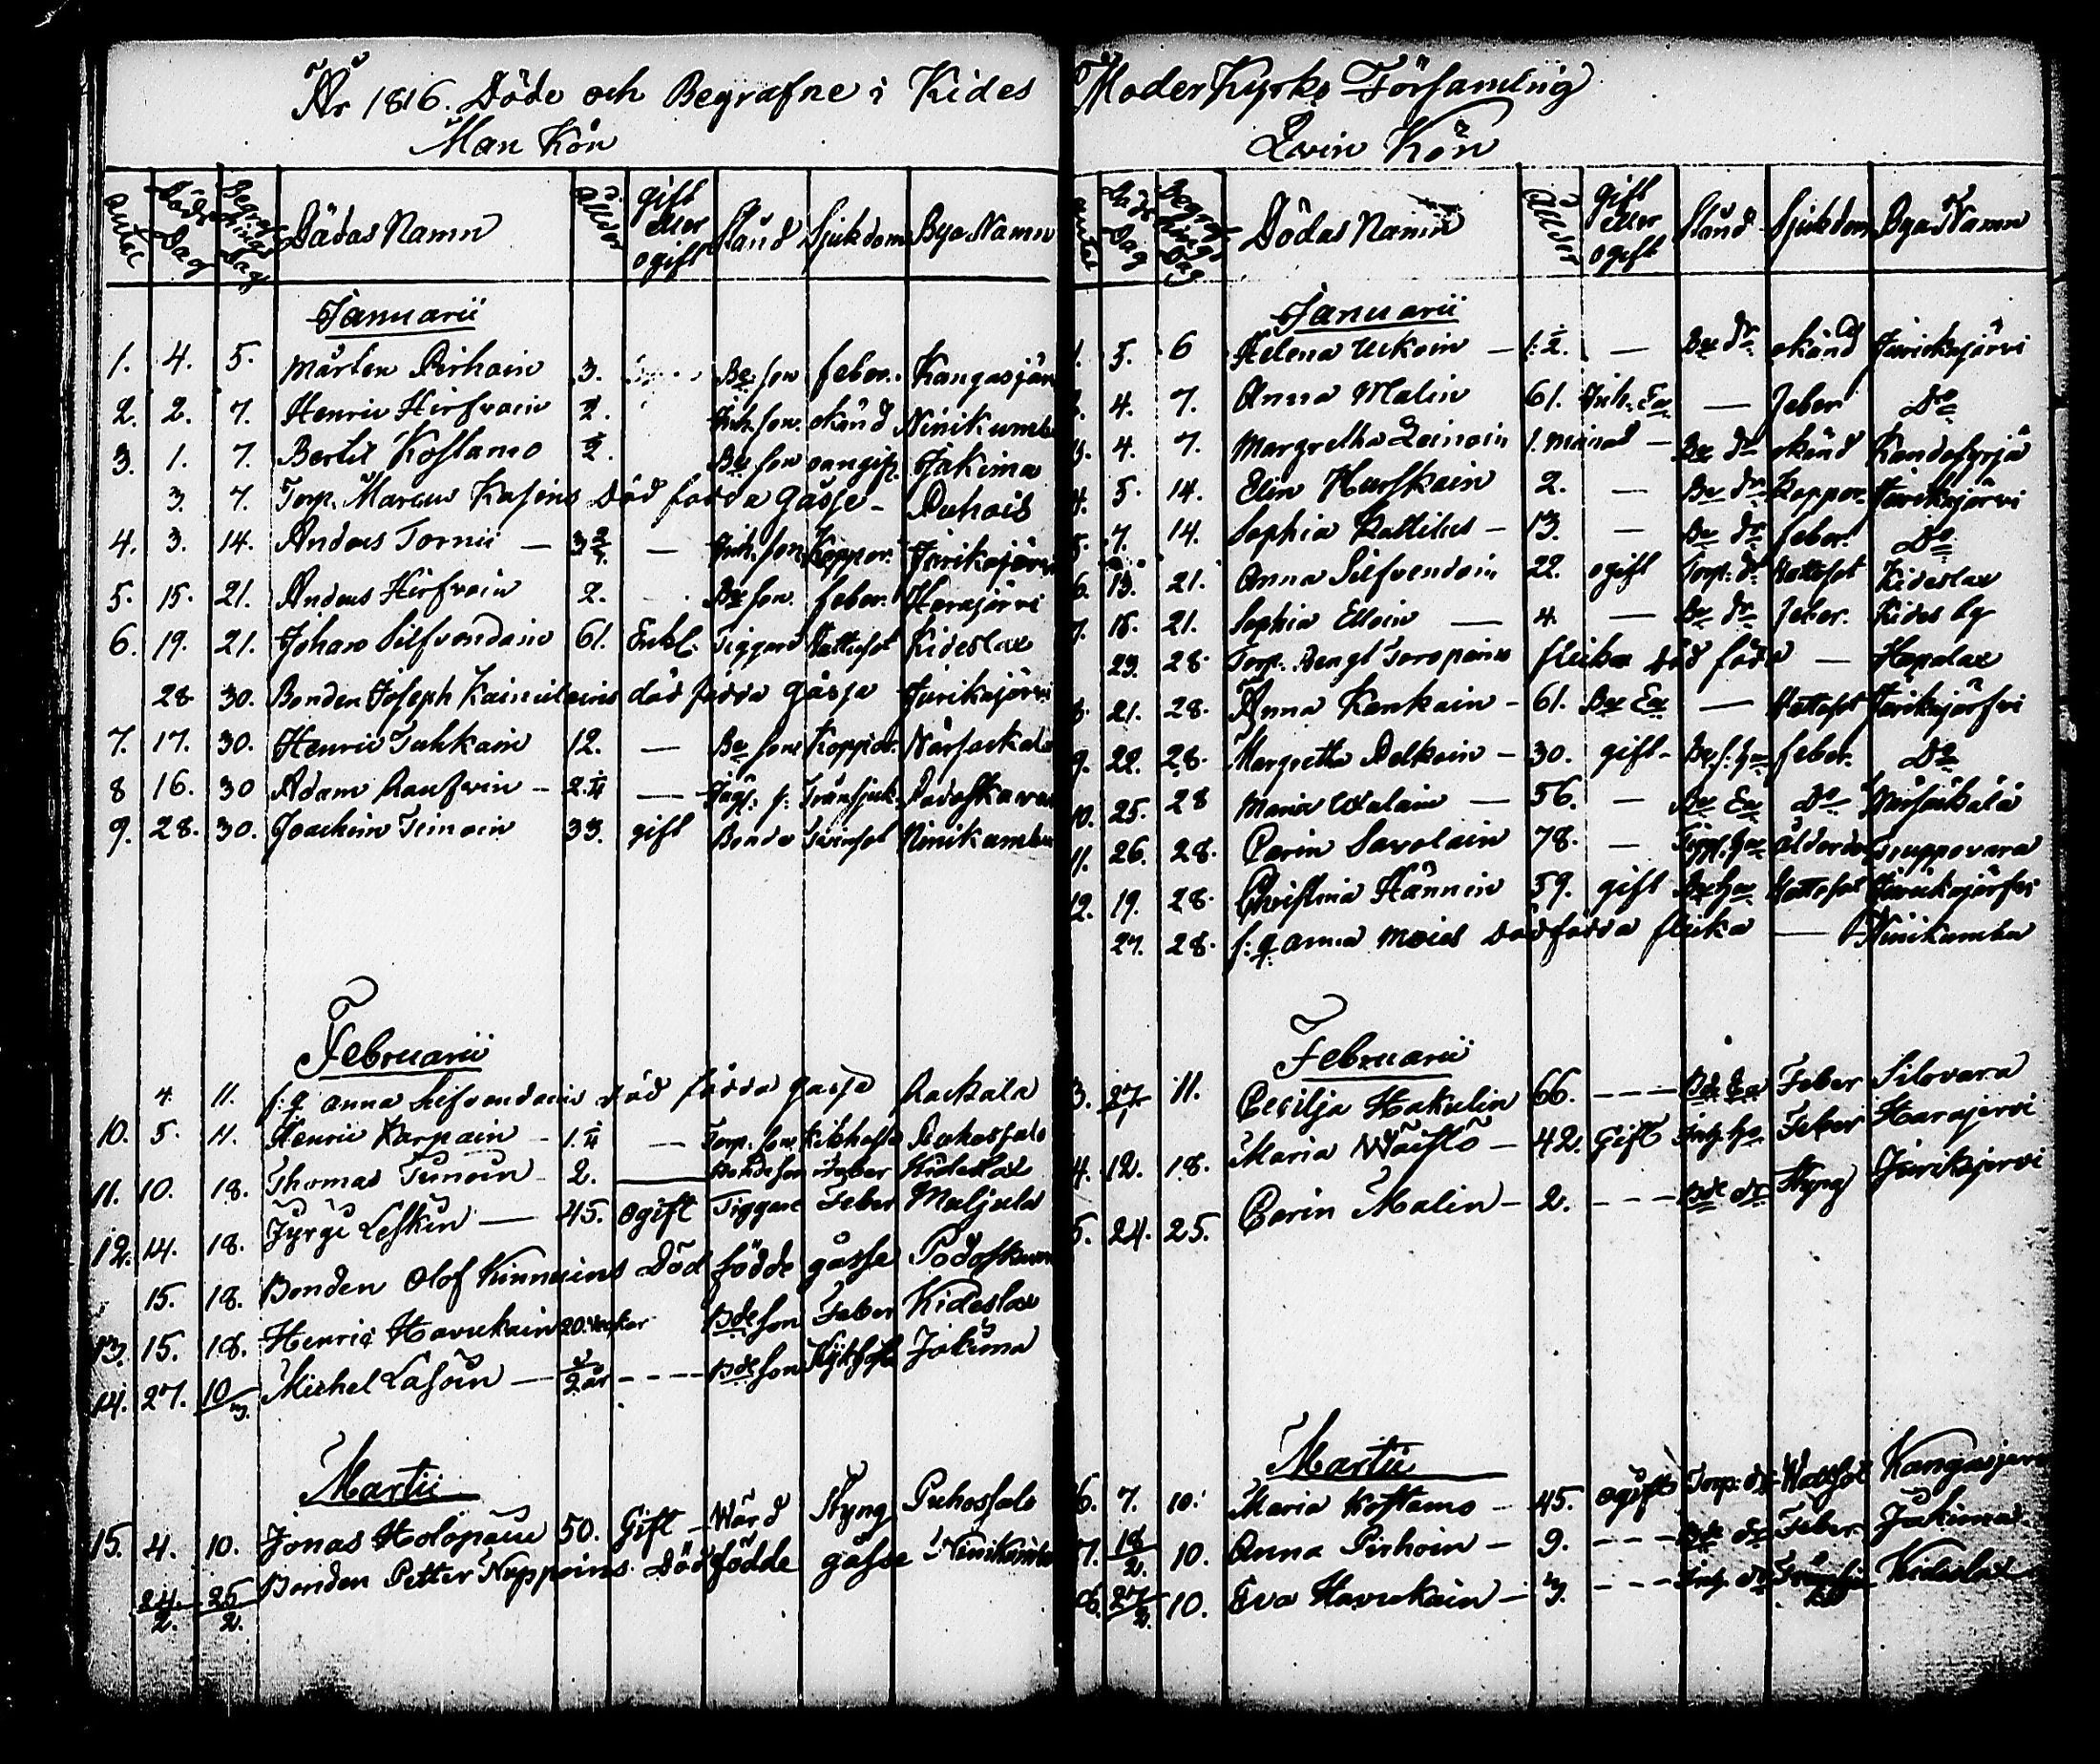 År 1816. Döde och Begrafne i Kides Moder Kyrko Församling
Man Kön
antal Döds Dag Begrafnings Dag Dödas Namn Ålder gift eller ogift Stånd Sjukdom Bya Namn
Januarii
1. 4. 5. Mårten Pirhoin 3. Be son feber. Kangasjär
2. 2. 7. Henric Hirfvoin 1/2. Inh. son. okänd Niinikumb
3. 1. 7. Bertil Kostamo 1/2. Be son oangif. Jakima
3. 7. Torp. Marcus Kasins Död födda gåsse - Puhois
4. 3. 14. Anders Tornii — 3 3/4 — Inh. son Koppor. Jurikajärvi
5. 15. 21. Anders Hirfvoin 2. Be son. feber. Harajärvi
6. 19. 21. Johan Silfvendain 61. Enkl. Tiggare Vattusot Kideslax
28. 30. Bonden Joseph Kainulains död födda gåsse Jurikajärvi
7. 17. 30. Henric Juhkain 12. — Be son Koppor Närsäkälä
8 16. 30 Adam — 2. 1/4 — f: Potoskava
9. 28. 30. Joachim Timoin 33. gift Bonde Tvinsot Niinikumbu
Februarii
4. 11. f: q anna Silfvendains död födda gåsse Rackala
10. 5. 11. Henric Karpain - 1. 1/4 — Torp. son Kikhosta Puhossalo
11. 10. 18. Thomas Timoin - 2. — Bonde son Feber Kideslax
12. 14. 18. Jyrgi Leskin — 45. Ogift Tiggare Feber Muljula
15. 18. Bonden Olof Kinnuins Död födde gåsse Potoskava
13. 15. 18. Henric Havukain 20. veckor Bde son Feber Kideslax
14. 27. 10/3. Michel Lasoin — 1/2 år - - - - Bde son Kikhosta Jakima
Martii
15. 4. 10. Jonas Holopain 50. Gift - Wärd Styng Puhossalo
24./2. 25./2. Bonden Petter Nuppoins Död födde gåsse Niinikumbu
Qvin Kön
antal Döds Dag Begrafnings Dag Dödas Namn Ålder gift eller ogift Stånd Sjukdom Bya Namn
Januarii
1. 5. 6 Helena Uskoin — 1. 1/2. — Be dr okänd Jurickajärvi
2. 4. 7. Anna Malin 61. Inh. Ea — feber Do
3. 4. 7. Margretha Loinoin 1. månad — Be dr okänd Kandosyrjä
4. 5. 14. Elin Hurskain 2. — Be dr Koppor Jurikajärvi
5. 7. 14. Sophia Rattilus — 13. — Be dr feber. Do
6. 13. 21. Anna Silfvendoin 22. ogift Torp. dr Vattusot Kideslax
7. 15. 21. Sophia Elloin — 4. — Be dr feber. Kides by
23. 28. Torp. Bengt Toropains flicka död född — Hapalax
8. 21. 28. Anna Kankain - 61. Be Ea — Vattusot Jurikajärfvi
9. 22. 28. Margretha Pelkoin - 30. gift - Be. f: hu feber. Do
10. 25. 28 Maria — 56. — Be Ea Do Närsäkälä
11. 26. 28. Carin Savolain 78. — Tigg. hu ålderdom Truppovara
12. 19. 28. Christina Hännin 59. gift Be hu Vattusot Jurikajärfvi
27. 28. f: q anna Moisis död födda flicka — Niinikumbu
Februarii
3. 27/1. 11. Cecilja Hakulin 66. - - - Bde Ea Feber Silovara
4. 12. 18. Maria Wäistö - 42. Gift Inh. hu Feber Harajervi
5. 24. 25. Carin Malin - 2. - - - Bde dr Styng Jurikajervi
Martii
6. 7. 10. Maria Kostamo - 45. ogift Torp. dr Wattsot Kangasjerv
7. 18/2. 10. Anna Pirhoin - 9. - - - Bde dr Feber Jakima
8. 27/2. 10. Eva Havukain - 3. - - - Inh. dr Kideslax